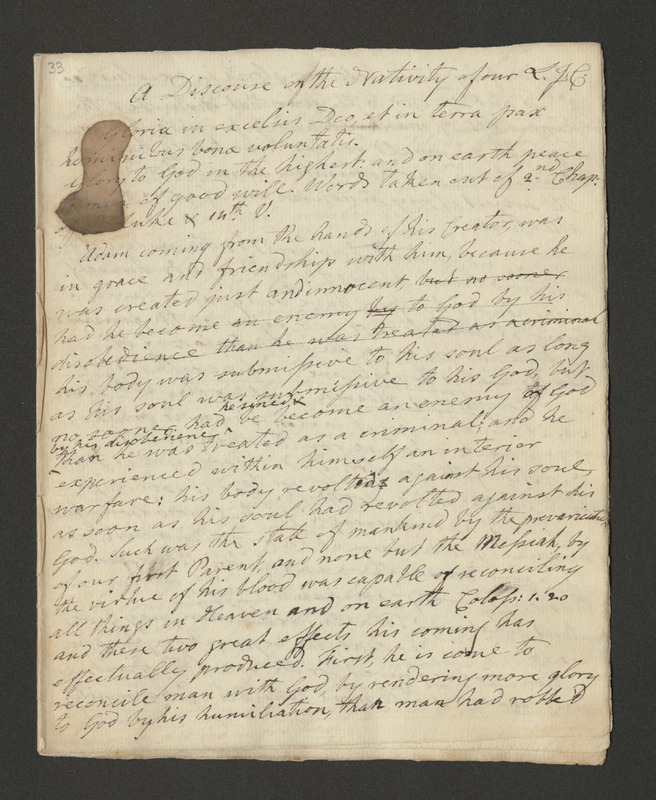 33
A Discourse on the Nativity of our L. J. C.
Gloria in excelsis Deo, et in terra pax
hominibus bonæ voluntatis.
Glory to God in the highest: and on earth peace
to men of good will. Words taken out of 2nd Chap:
Luke & 14th V.
Adam coming from the hands of his Creator, was
in grace and friendship with him, because he
was created just and innocent but no sooner
had he become an enemy by to God by his
disobedience than he was treated as a criminal
his body was submissive to his soul as long
as his soul was submissive to his God, but
he sinned &
no sooner had he become an enemy of God
by his disobedience
than he was treated as a criminal; and he
experienced within himself an interior
warfare: his body revolted against his soul,
as soon as his soul had revolted against his
God. Such was the state of mankind by the prevarication
of our first Parent, and none but the Messiah, by
the virtue of his blood was capable of reconciling
all things in Heaven and on earth Coloss: 1. 20
and these two great effects his coming has
effectually produced. First, he is come to
reconcile man with God, by rendering more glory
to God by his humiliation, than man had robbed